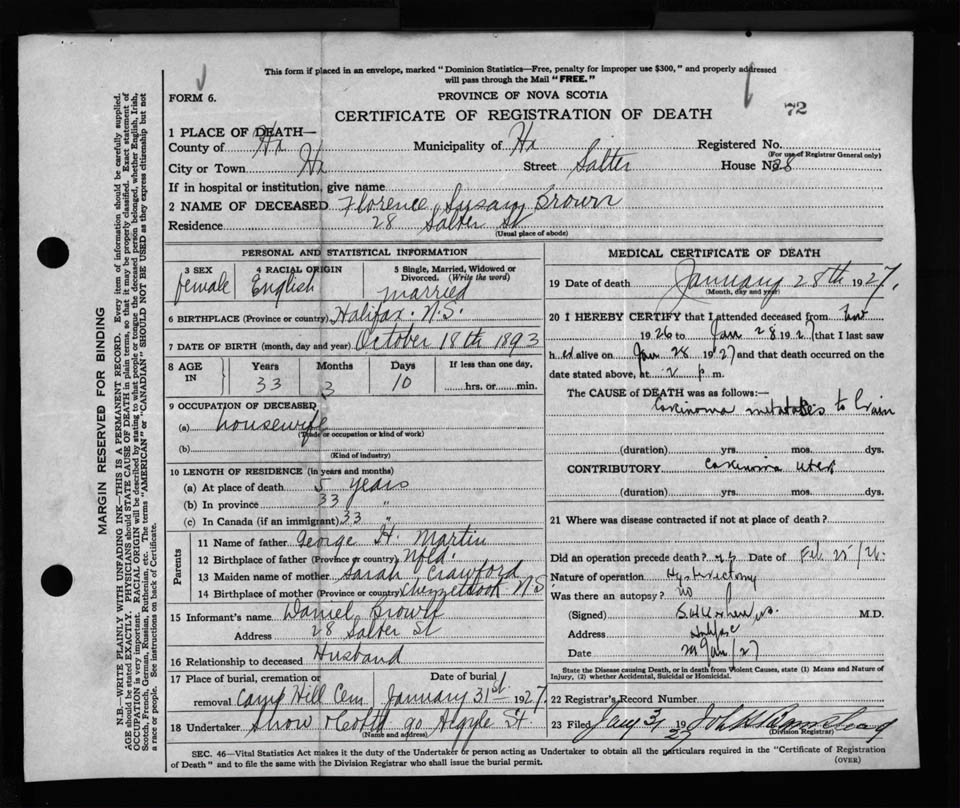 This form if placed in an envelope, marked "Dominion Statistics—Free, penalty for improper use $300," and properly addressed
will pass through the Mail "FREE."
FORM 6.
PROVINCE OF NOVA SCOTIA
72
CERTIFICATE OF REGISTRATION OF DEATH
1 PLACE OF DEATH—
County of Hx Municipality of Hx Registered No.
(For use of Registrar General only)
City or Town Hx Street Salter House No. 28
If in hospital or institution, give name
2 NAME OF DECEASED Florence Susan Brown
Residence 28 Salter St
(Usual place of abode)
PERSONAL AND STATISTICAL INFORMATION
3 SEX 4 RACIAL ORIGIN 5 Single, Married, Widowed or
Divorced. (Write the word)
female English married
6 BIRTHPLACE (Province or country) Halifax. N.S.
7 DATE OF BIRTH (month, day and year) October 18th 1893
8 AGE IN Years Months Days If less than one day,
33 3 10 hrs. or min.
9 OCCUPATION OF DECEASED
(a) housewife
(Trade or occupation or kind of work)
(b)
(Kind of industry)
10 LENGTH OF RESIDENCE (in years and months)
(a) At place of death 5 years
(b) In province 33 "
(c) In Canada (if an immigrant) 33 "
Parents
11 Name of father George H. Martin
12 Birthplace of father (Province or country) Nfld.
13 Maiden name of mother Sarah Crawford
14 Birthplace of mother (Province or country) Chezzetcook N S
15 Informant's name Daniel Brown
Address 28 Salter St
16 Relationship to deceased Husband
17 Place of burial, cremation or Date of burial
removal Camp Hill Cem January 31st 1927
18 Undertaker Snow & Co Ltd 90 Argyle St.
(Name and address)
MEDICAL CERTIFICATE OF DEATH
19 Date of death January 28th 1927.
(Month, day and year)
20 I HEREBY CERTIFY that I attended deceased from Nov
1926 to Jan 28 1927 that I last saw
her alive on Jan 28 1927 and that death occurred on the
date stated above, at 2 p.m.
The CAUSE of DEATH was as follows:—
Carcinoma metastasis to brain
(duration) yrs. mos. dys.
CONTRIBUTORY Carcinoma uteri
(duration) yrs. mos. dys.
21 Where was disease contracted if not at place of death?
Did an operation precede death? yes Date of Feb. 25/26.
Nature of operation Hysterectomy
Was there an autopsy? no
(Signed) M.D.
Address Halifax
Date Jan/27
State the Disease causing Death, or in death from Violent Causes, state (1) Means and Nature of
Injury, (2) whether Accidental, Suicidal or Homicidal.
22 Registrar's Record Number
23 Filed Jany 31 1927
(Division Registrar)
SEC. 46—Vital Statistics Act makes it the duty of the Undertaker or person acting as Undertaker to obtain all the particulars required in the "Certificate of Registration
of Death" and to file the same with the Division Registrar who shall issue the burial permit.
(OVER)
MARGIN RESERVED FOR BINDING
N.B.—WRITE PLAINLY WITH UNFADING INK—THIS IS A PERMANENT RECORD. Every item of information should be carefully supplied.
AGE should be stated EXACTLY. PHYSICIANS should STATE CAUSE OF DEATH in plain terms, so that it may be properly classified. Exact statement of
OCCUPATION is very important. RACIAL ORIGIN will be described by stating to what people or tongue the deceased person belonged, whether English, Irish,
Scotch, French, German, Russian, Ruthenian, etc. The terms "AMERICAN" or "CANADIAN" SHOULD NOT BE USED as they express citizenship but not
a race or people. See instructions on back of Certificate.